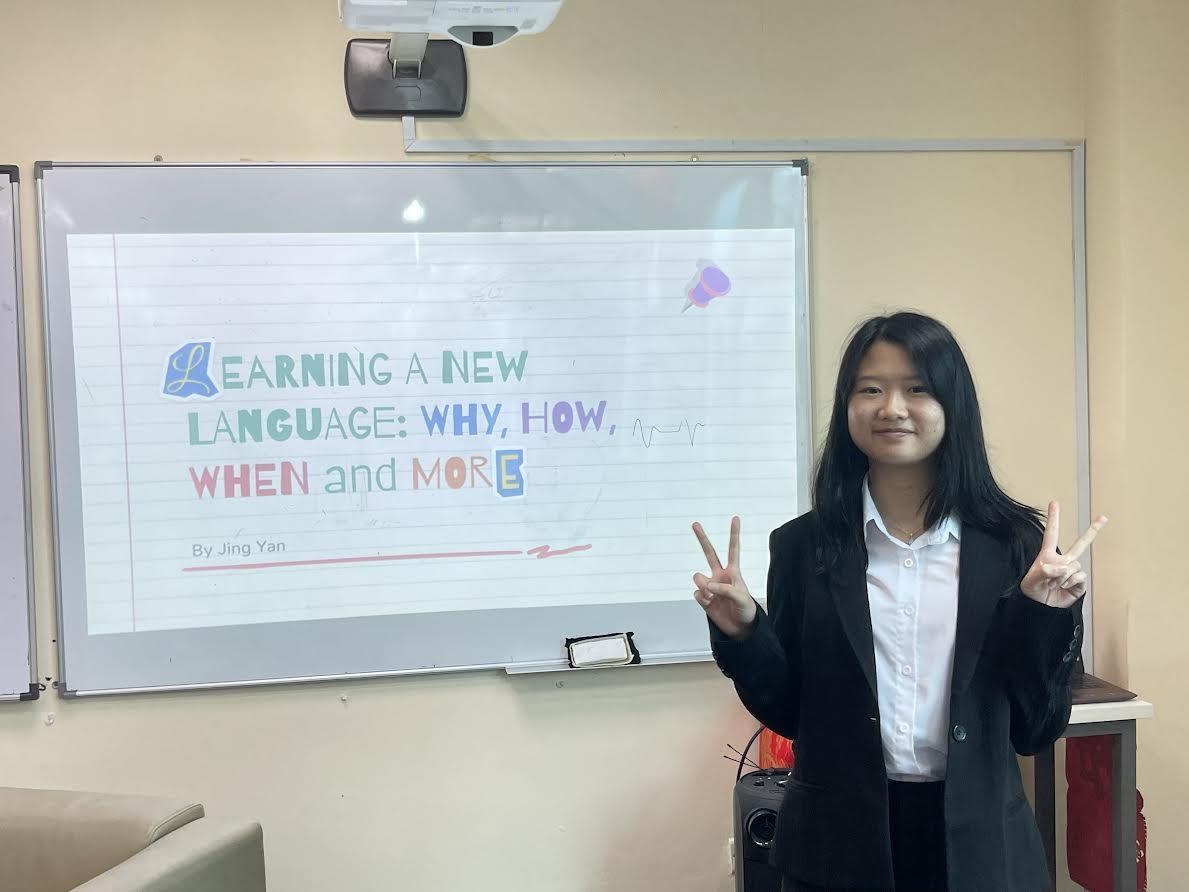 LEARNING A NEW
LANGUAGE: WHY, HOW,
WHEN and MORE
By Jing Yan